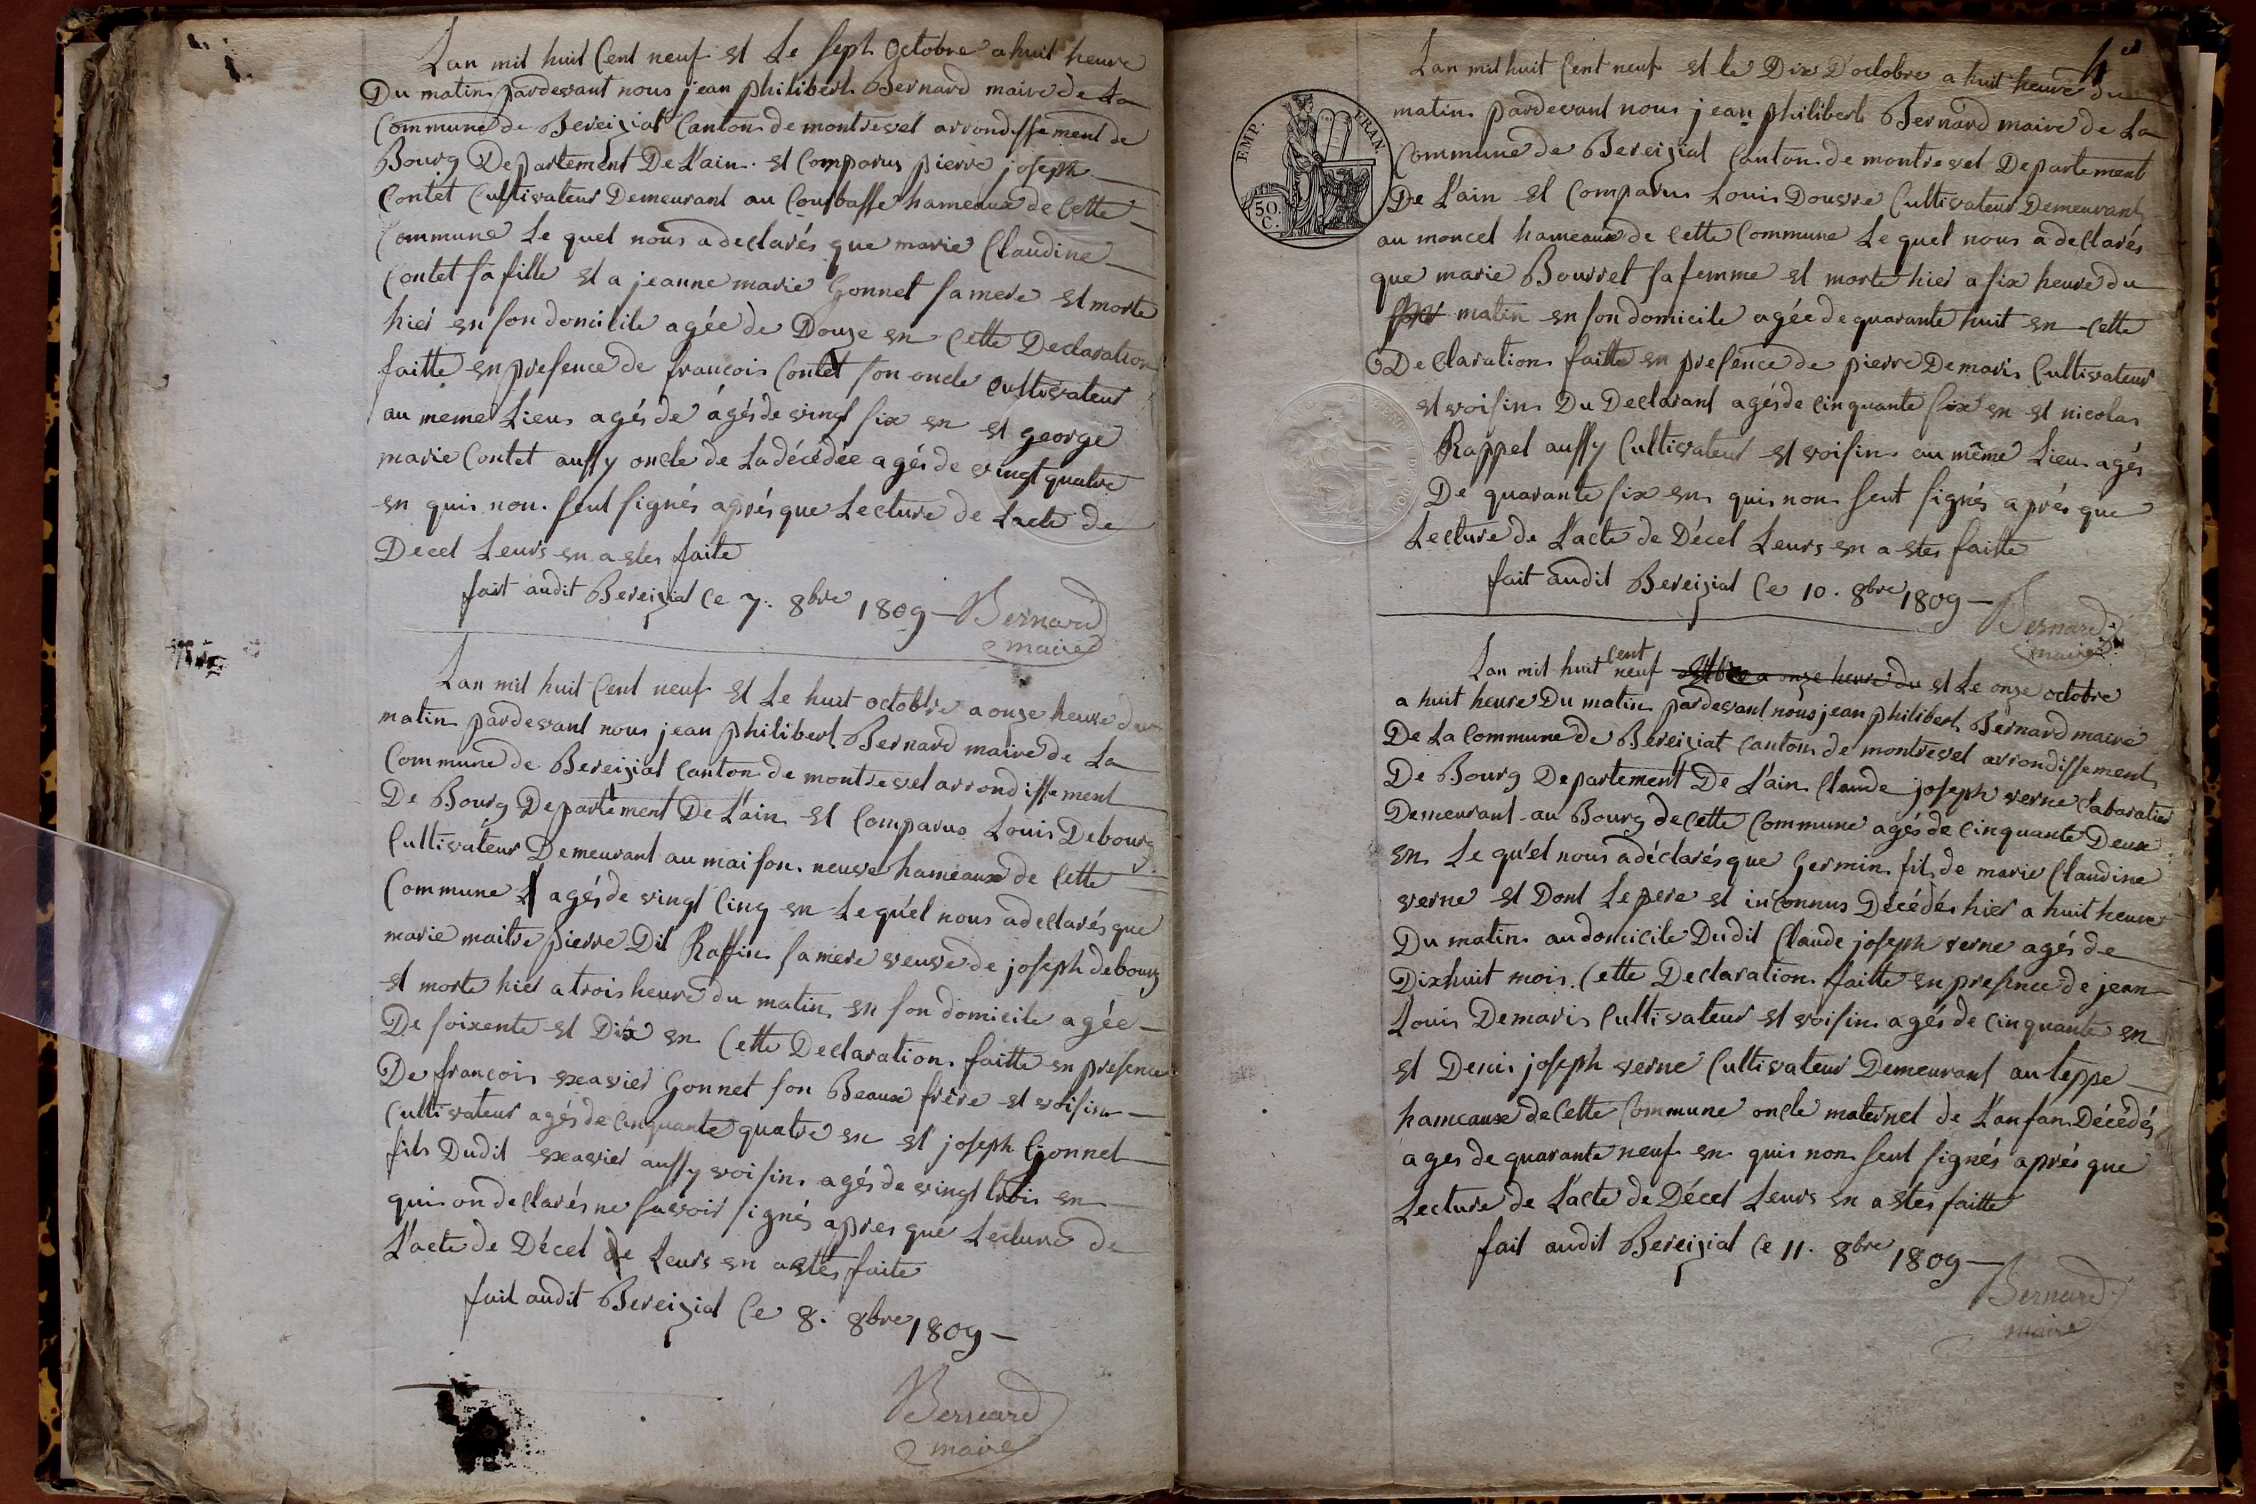 Lan mil huit Cent neuf et Le Sept Octobre a huit heure
Du matin pardevant nous jean philibert Bernard maire de La
Commune de Bereiziat Canton de montrevel arrondissement de
Bourg Departement De L'ain et Comparus pierre joseph
Contet Cultivateur Demeurant au Courbasse hameaux de Cette
Commune Le quel nous a declarés que marie Claudine
Contet sa fille et a jeanne marie Gonnet sa mere et morte
hier en son domicile agée de Douze en Cette Declaration
faitte en presence de francois Contet son oncle Cultivateur
au meme Lieu agés de agés de vingt six en et george
marie Contet aussy oncle de La décédée agés de vingt quatre
en qui non Seut signés aprés que Lecture de Lacte de
Decet Leurs en a etes faite
fait audit Bereiziat Ce 7. 8bre 1809 Bernard
maire
Lan mil huit Cent neuf et Le huit octobre a onze heure du
matin pardevant nous jean philibert Bernard maire de La
Commune de Bereiziat Canton de montrevel arrondissement
De Bourg Departement De L'ain et Comparus Louis Debourg
Cultivateur Demeurant au maison neuve hameaux de Cette
Commune agés de vingt Cinq en Le quel nous a declarés que
marie maitre pierre Dit Raffin sa mere veuve de joseph debourg
et morte hier a trois heure du matin en son domicile agée
De soixente et Dix en Cette Declaration faitte en presence
De francois xeavier Gonnet son Beaux frère et voisin
Cultivateur agés de Cinquante quatre en et joseph Gonnet
fils Dudit xeavier aussy voisin agés de vingt trois en
qui on declarés ne savoir signés apres que Lecture de
L'acte de Décet de Leurs en a etés faite
fait audit Bereiziat Ce 8. 8bre 1809
Bernard
maire
EMP. FRAN.
50. C.
Lan mil huit Cent neuf et le Dix D'octobre a huit heure du
matin pardevant nous jean philibert Bernard maire de La
Commune de Bereiziat Canton de montrevel Departement
De L'ain et Comparus Louis Douvre Cultivateur Demeurant
au moncel hameaux de Cette Commune Le quel nous a declarés
que marie Bourret sa femme et morte hier a six heure du
matin en son domicile agée de quarante huit en Cette
Declaration faitte en presence de pierre Demaris Cultivateur
et voisin Du Declarant agés de Cinquante six en et nicolas
Rappet aussy Cultivateur et voisin au même Lieu agés
De quarante six en qui non Seut signés aprés que
Lecture de L'acte de Décet Leurs en a etes faitte
fait audit Bereiziat Ce 10. 8bre 1809
Bernard
maire
Lan mil huit Cent neuf et Le onze octobre
a huit heure Du matin pardevant nous jean philibert Bernard maire
De La Commune de Bereiziat Canton de montrevel arrondissement
De Bourg Departement De L'ain Claude joseph verne
Demeurant au Bourg de Cette Commune agés de Cinquante Deux
en Le qu'el nous a déclarés que Germin fils de marie Claudine
verne et Dont Le pere et inconnus Décédés hier a huit heure
Du matin au domicile Dudit Claude joseph verne agés de
Dixhuit mois Cette Declaration faitte en presence de jean
Louis Demaris Cultivateur et voisin agés de Cinquante en
et Denis joseph verne Cultivateur Demeurant au teppe
hameaux de Cette Commune oncle maternel de L'anfan Décédés
ages de quarante neuf en qui non Seut signés aprés que
Lecture de L'acte de Décet Leurs en a etés faitte
fait audit Bereiziat Ce 11. 8bre 1809
Bernard
maire